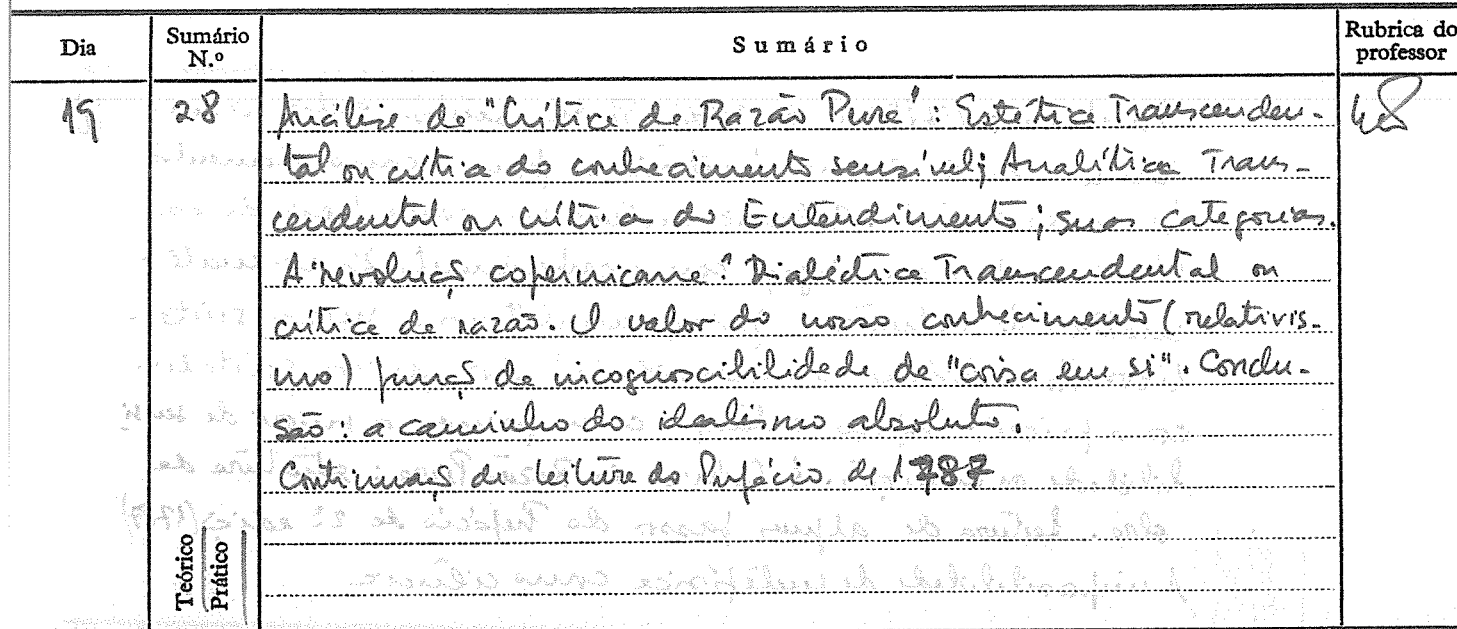 Dia
Sumário N.º
Sumário
Rubrica do professor
19
28
Análise da "Crítica da Razão Pura": Estética Transcenden-
tal ou crítica do conhecimento sensível; Analítica Trans-
cendental ou crítica do Entendimento; suas categorias.
A "revolução copernicana". Dialéctica Transcendental ou
crítica da razão. O valor do nosso conhecimento (relativis-
mo) função da incognoscibilidade da "coisa em si". Conclu-
são: a caminho do idealismo absoluto.
Continuação da leitura do Prefácio de 1787
Teórico
Prático